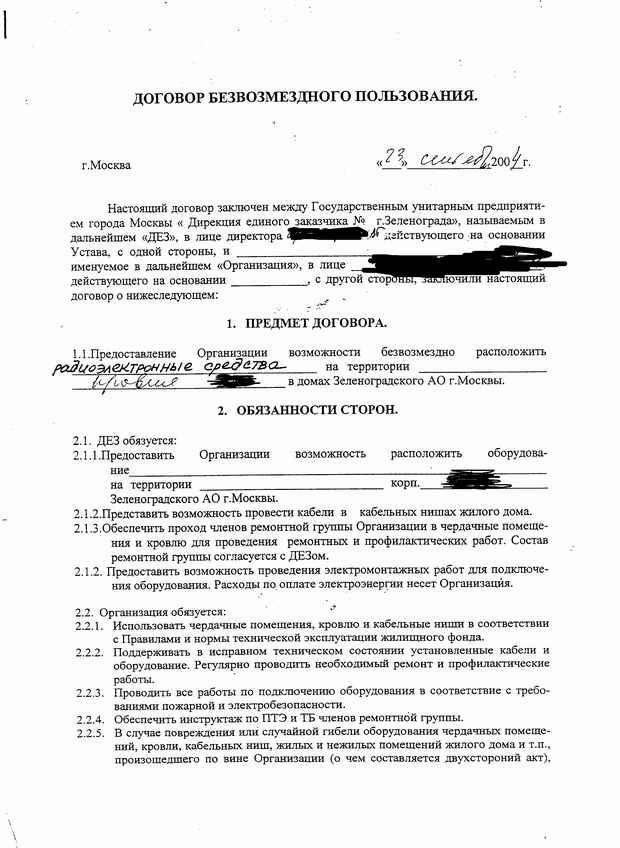 ДОГОВОР БЕЗВОЗМЕЗДНОГО ПОЛЬЗОВАНИЯ.
г.Москва «23» сентября 2004 г.
Настоящий договор заключен между Государственным унитарным предприяти-
ем города Москвы « Дирекция единого заказчика № г.Зеленограда», называемым в
дальнейшем «ДЕЗ», в лице директора действующего на основании
Устава, с одной стороны, и
именуемое в дальнейшем «Организация», в лице
действующего на основании , с другой стороны, заключили настоящий
договор о нижеследующем:
1. ПРЕДМЕТ ДОГОВОРА.
1.1.Предоставление Организации возможности безвозмездно расположить
радиоэлектронные средства на территории
кровлие в домах Зеленоградского АО г.Москвы.
2. ОБЯЗАННОСТИ СТОРОН.
2.1. ДЕЗ обязуется:
2.1.1.Предоставить Организации возможность расположить оборудова-
ние
на территории корп.
Зеленоградского АО г.Москвы.
2.1.2.Представить возможность провести кабели в кабельных нишах жилого дома.
2.1.3.Обеспечить проход членов ремонтной группы Организации в чердачные помеще-
ния и кровлю для проведения ремонтных и профилактических работ. Состав
ремонтной группы согласуется с ДЕЗом.
2.1.2. Предоставить возможность проведения электромонтажных работ для подключе-
ния оборудования. Расходы по оплате электроэнергии несет Организация.
2.2. Организация обязуется:
2.2.1. Использовать чердачные помещения, кровлю и кабельные ниши в соответствии
с Правилами и нормы технической эксплуатации жилищного фонда.
2.2.2. Поддерживать в исправном техническом состоянии установленные кабели и
оборудование. Регулярно проводить необходимый ремонт и профилактические
работы.
2.2.3. Проводить все работы по подключению оборудования в соответствие с требо-
ваниями пожарной и электробезопасности.
2.2.4. Обеспечить инструктаж по ПТЭ и ТБ членов ремонтной группы.
2.2.5. В случае повреждения или случайной гибели оборудования чердачных помеще-
ний, кровли, кабельных ниш, жилых и нежилых помещений жилого дома и т.п.,
произошедшего по вине Организации (о чем составляется двухстороний акт),